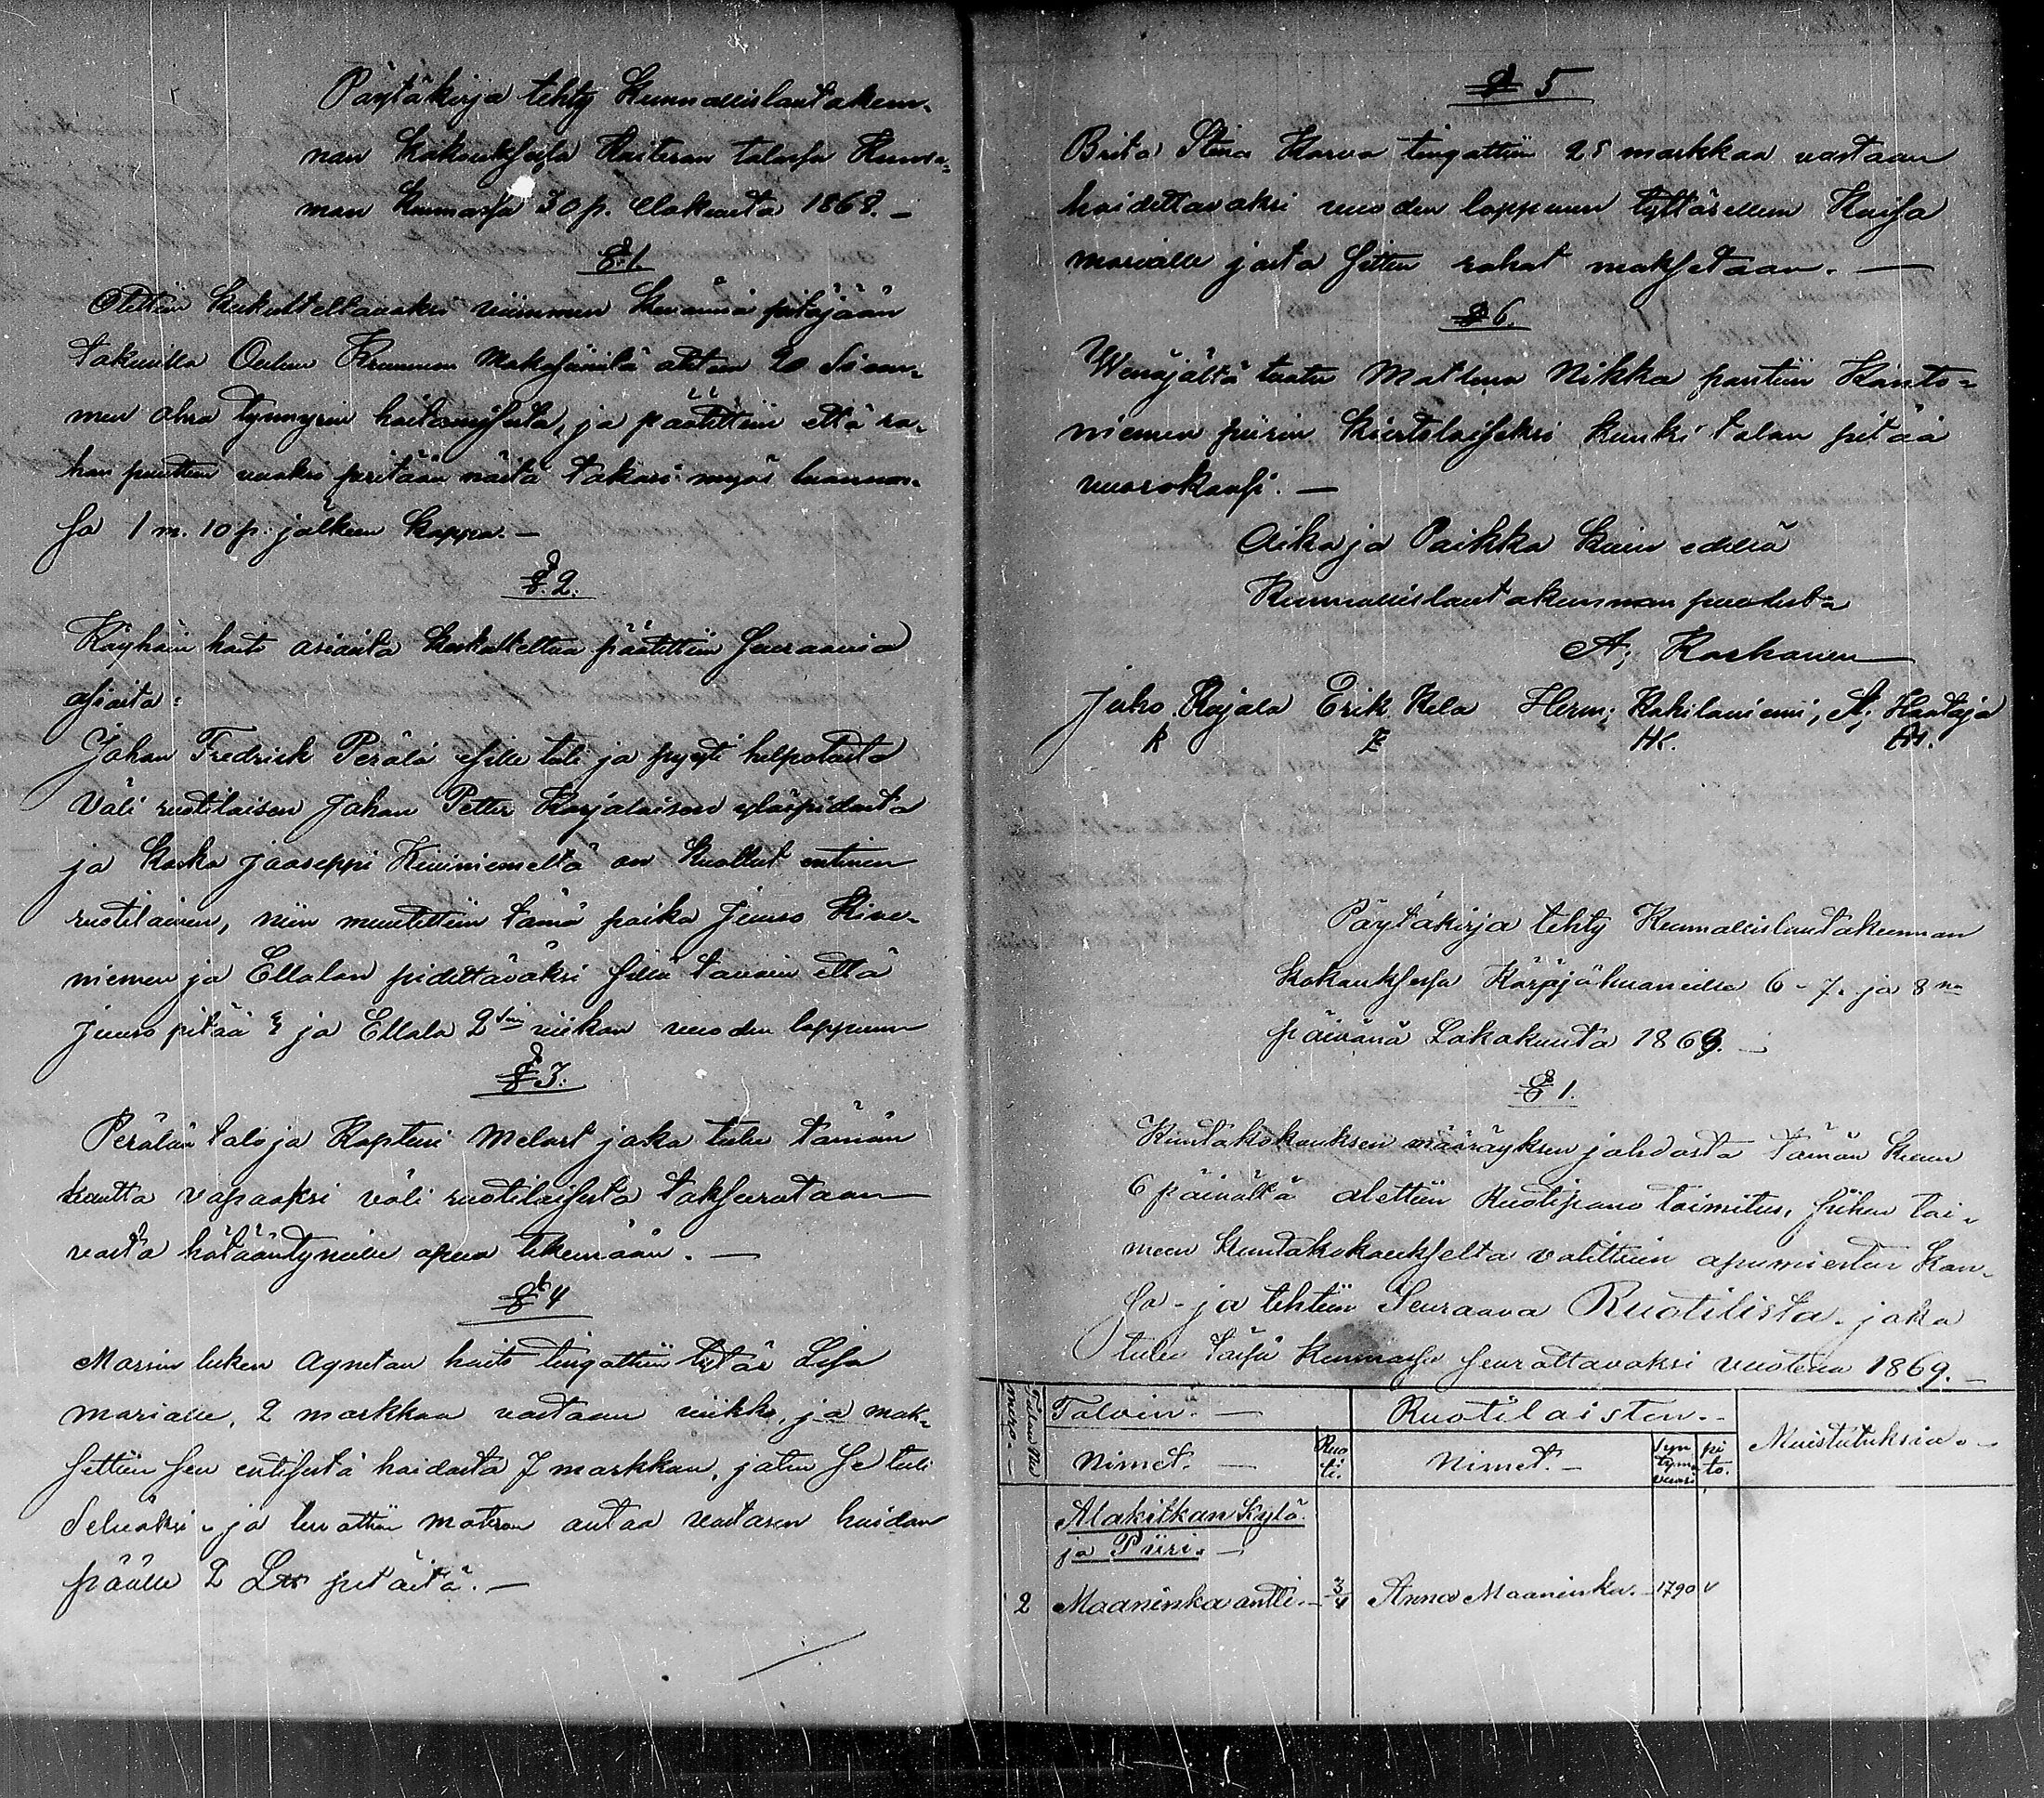 Päytäkirja tehty Kunnallislautakun-
nan kokouksesa Kaiteran talossa Kuusa-
mon kunnassa 30 p. elokuuta 1868. —
§ 1.
Otettiin keskusteltavaksi viimmen kevännä pitäjään
takuilla Oulun Kruunun Makasiinilta ottein 20 Siemen-
men ohra tynnyrin hoitamisesta, ja päätettiin että ra-
han puutteen vuoksi peritään näitä takasi myös luonnos-
sa 1 m. 10 p. jälkeen kappa. —
§. 2.
Käyhäin hoito asioista keskusteltua päätettiin seuraavia
asioita:
Johan Fredrick Perälä esille tuli ja pyysi helpotusta
väli ruotilaisen Johan Petter Karjalaisen ylöspidosta
ja koska Jaaseppi Kiviniemeltä on kuollut entinen
ruotilainen, niin muutettiin tämä paika Juuso Kivi-
niemen ja Ellalan pidettäväksi sillä tavoin että
Juuso pitää ja Ellala 2 viikon vuoden loppuun
§ 3.
Perälän talo ja Kapteni Melart joka tulee tämän
kautta vapaaksi väli ruotilaisesta taksuerataan
vasta hätääntyneille apua tekemään. —
§ 4
Marsin lesken Agnetan hoito tingattiin tytär Lisa
marialle, 2 markkaa vastaan viikko, ja mak-
settiin sen entisestä hoidosta 7 markkaa, joten se tuli
Selväksi - ja luvattiin matkan antaa vastasen hoidon
päälle 2 L petäitä. —
§ 5
Brita Stina Karva tingattiin 25 markkaa vastaan
hoidettavaksi vuoden loppuun tyttärelleen Kaisa
marialle josta sitten rahat maksetaan. —
§ 6.
Wenäjältä tuotu Matlena Nikka pantiin Kanto-
niemen piirin kiertolaiseksi kunki talon pitää
vuorokausi. —
Aika ja Paikka kuin edellä
Kunnallislautakunnan puolesta
A; Korhonen
Juho Rajala Erik Kela Herm; Kokilaniemi, A; Hautaja
R E HK. AH.
Päytäkirja tehty Kunnallislautakunnan
kokouksessa Käräjähuoneilla 6 - 7. ja 8 na
päivänä Lokakuuta 1869. —
§ 1.
Kuntakokouksen määräyksen johdosta tämän kuun
6 päivältä alettiin Ruotijano toimitus, siihen toi-
meen kuntakokoukselta valittuin apumiesten kan-
sa - ja tehtiin Seuraava Ruotilista. joka
tulee täsä kunnassa seurattavaksi vuotena 1869. —
Talon No
Talvin. — Ruotilaisten. — Muistutuksia. —
Nimet. — Ruo ti. Nimet. — Syn tymä vuosi pi to.
Alakitkan Kylä
ja Piiri. —
2 Maaninka antti. — 3/4 Anna Maaninka. — 1790 v